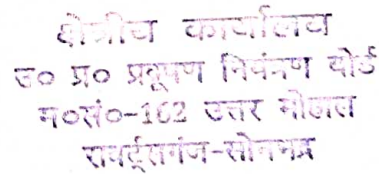 क्षेत्रीय कार्यालय
उ० प्र० प्रदूषण नियंत्रण बोर्ड
म०सं०-162 उत्तर मोहाल
राबर्ट्सगंज-सोनभद्र